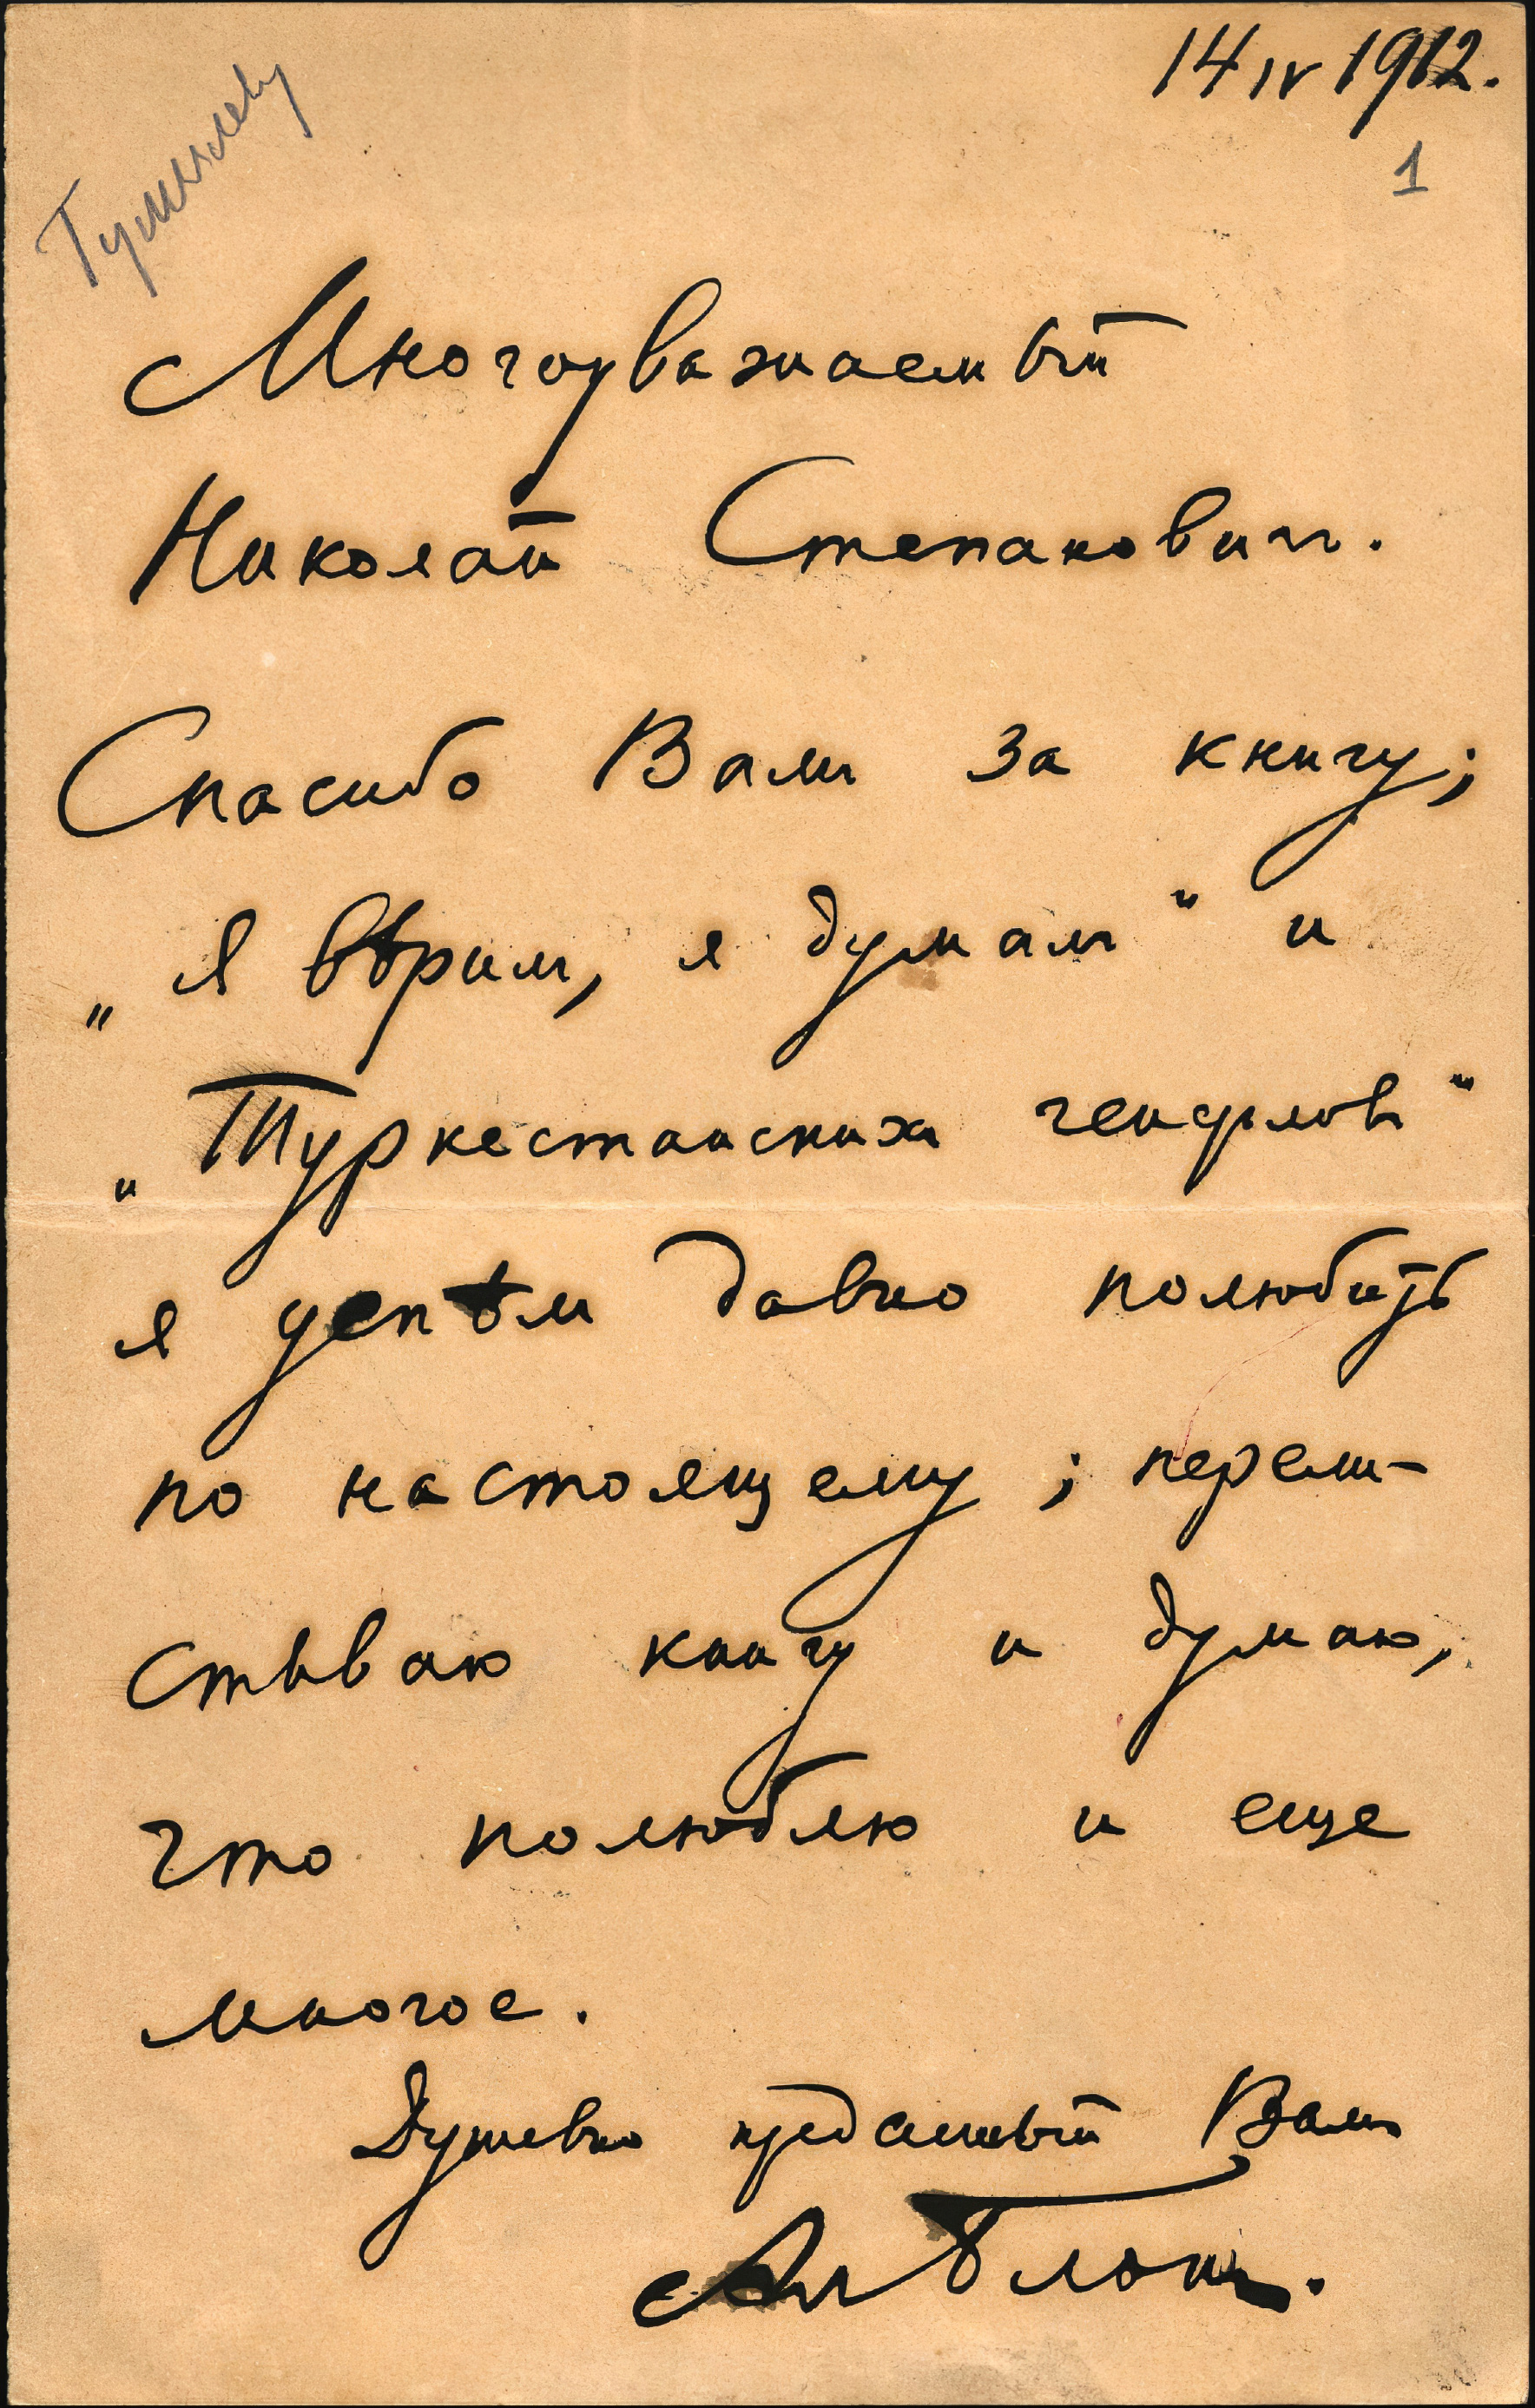 14 IV 1912.
Гумилеву
1
Многоуважаемый
Николай Степанович.
Спасибо Вам за книгу;
„Я вѣрил, я думал" и
„Туркестанских генералов"
я успѣл давно полюбить
по настоящему; перели-
стываю книгу и думаю,
что полюблю и еще
многое.
Душевно преданный Вам
Ал Блок.